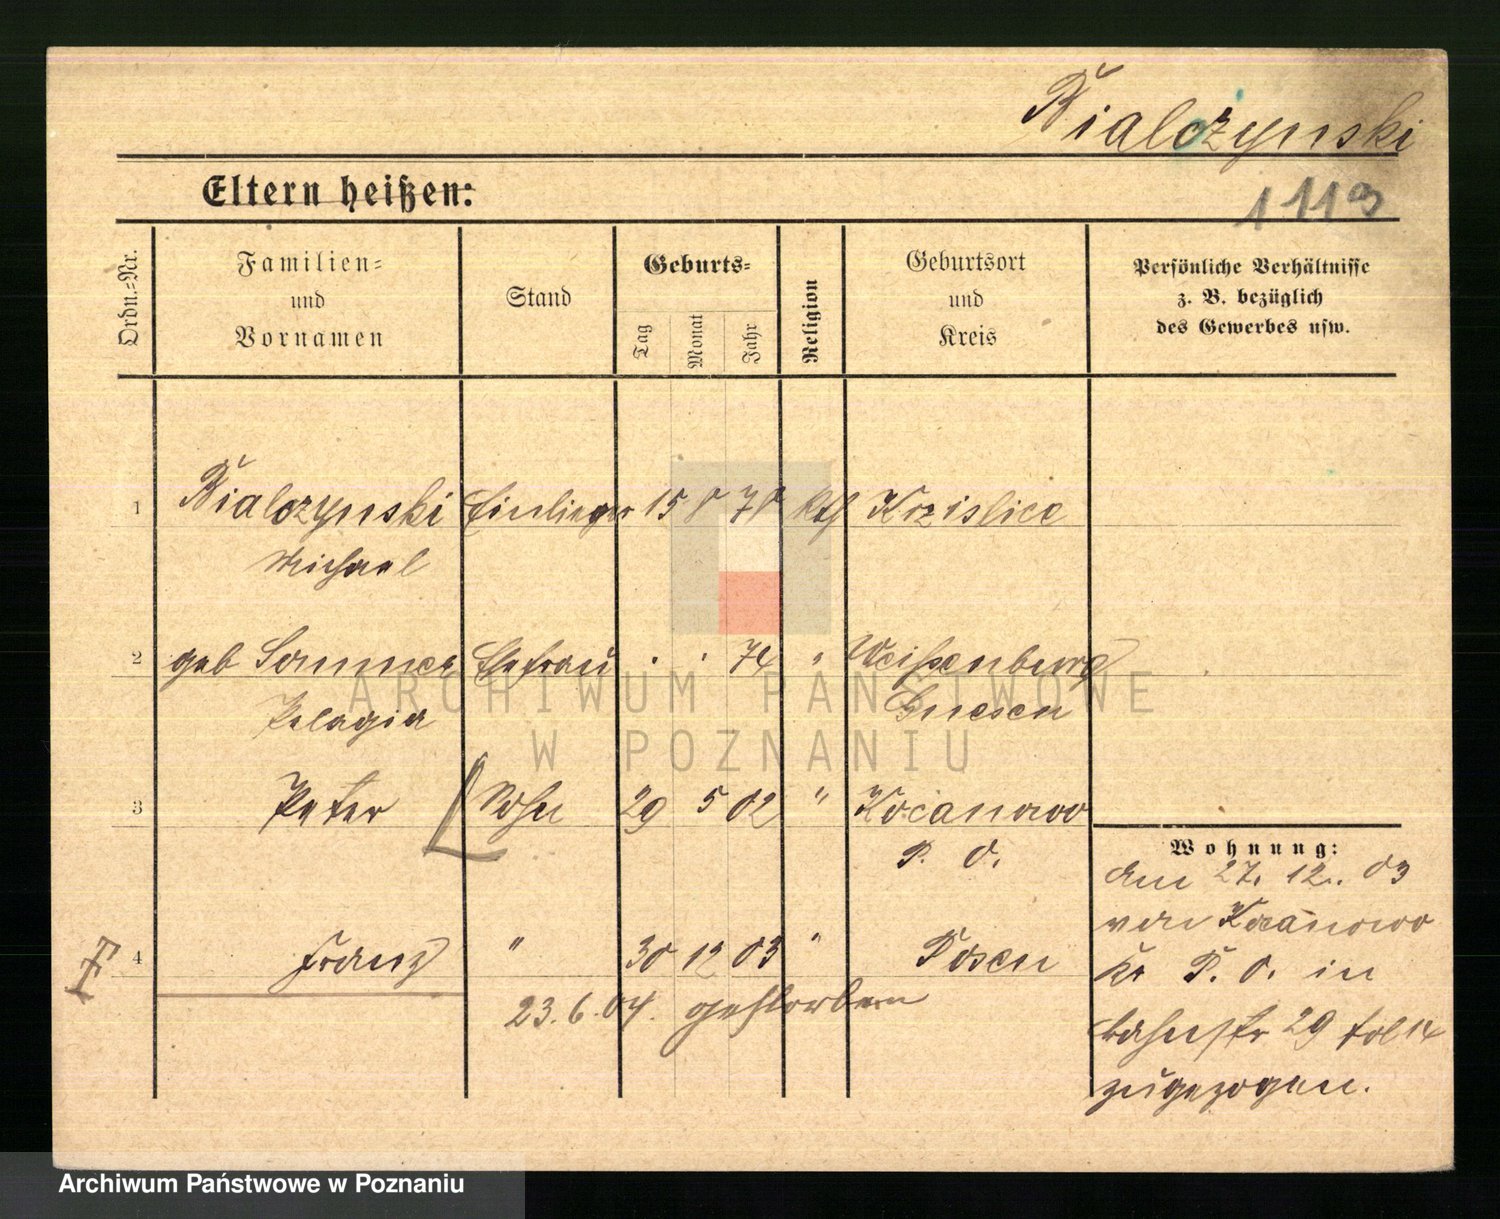 Bialczynski
1119
Eltern heißen:
Ordn.-Nr.
Familien-
und
Vornamen
Stand
Geburts-
Tag
Monat
Jahr
Religion
Geburtsort
und
Kreis
Persönliche Verhältnisse
z. B. bezüglich
des Gewerbes usw.
1 Bialczynski Einlieger 15 8 78 kth Krzislice
Michael
2 geb Sommer Ehefrau . . 74 " Weißenburg
Pelagia Gnesen
3 Peter Sohn 29 5 02 " Kocanowo
P. O.
4 Franz " 30 12 03 " Posen
23.6.04. gestorben
Wohnung:
den 27. 12. 03
von Kocanowo
Kr P. O. in
29 fol 14
zugezogen.
ARCHIWUM PAŃSTWOWE
W POZNANIU
Archiwum Państwowe w Poznaniu